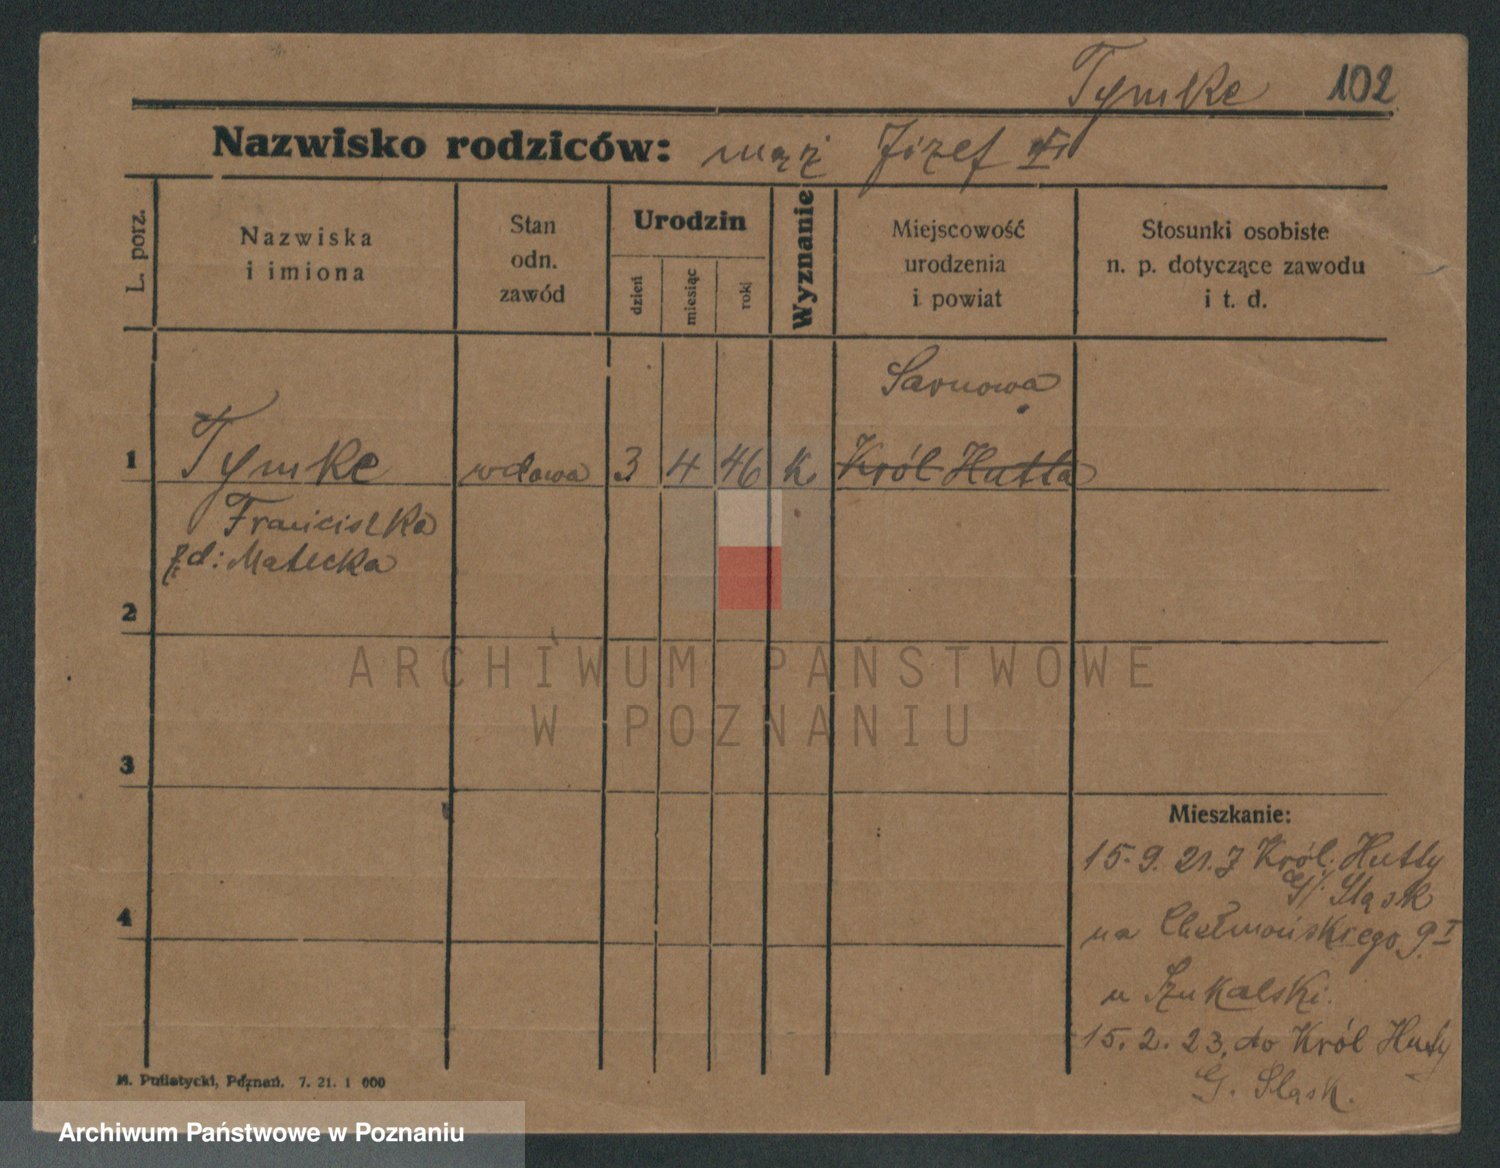 Tymke 102
Nazwisko rodziców: mąż Józef
L. porz.
Nazwiska
i imiona
Stan
odn.
zawód
Urodzin
dzień
miesiąc
rok
Wyznanie
Miejscowość
urodzenia
i powiat
Stosunki osobiste
n. p. dotyczące zawodu
i t. d.
Sarnowa
1 Tymke wdowa 3 4 46 k. Król Hutta
Franciszka
zd: Matecka
2
3
4
Mieszkanie:
15. 9. 21. z Król. Hutty
G/. Śląsk
na Chełmońskiego 9 I
u Szukalski.
15. 2. 23. do Król Huty
G. Śląsk.
M. Putiatycki, Poznań. 7. 21. 1 000
ARCHIWUM PAŃSTWOWE
W POZNANIU
Archiwum Państwowe w Poznaniu